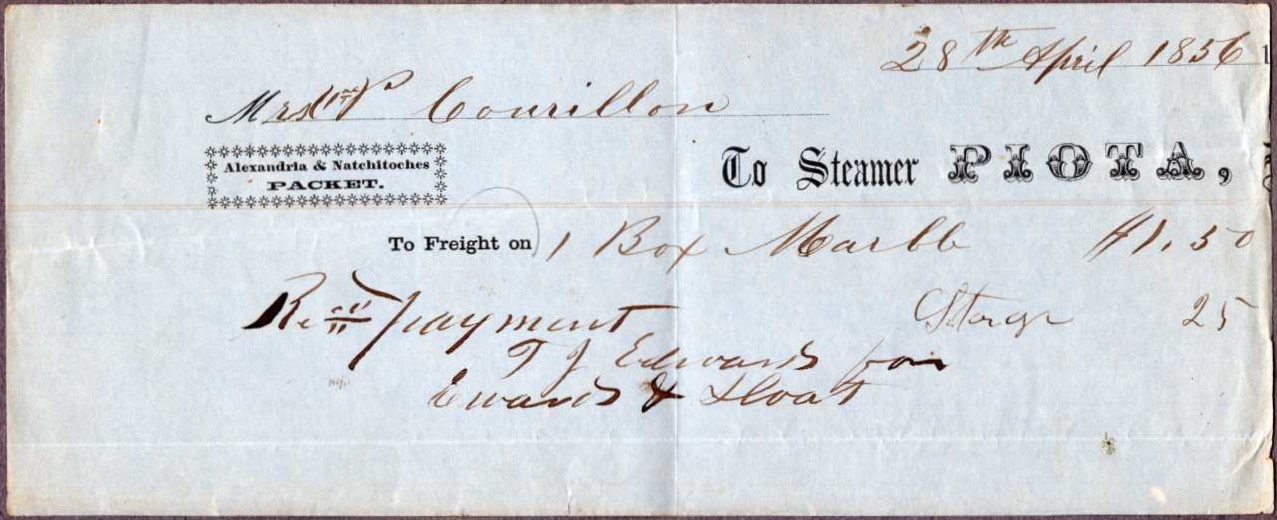 28th April 1856 1
Mrs P Courillon
Alexandria & Natchitoches
PACKET.
To Steamer PIOTA,
To Freight on 1 Box Marble $1.50
Storage 25
Recd payment
T J Edwards for
Ewards & Sloat